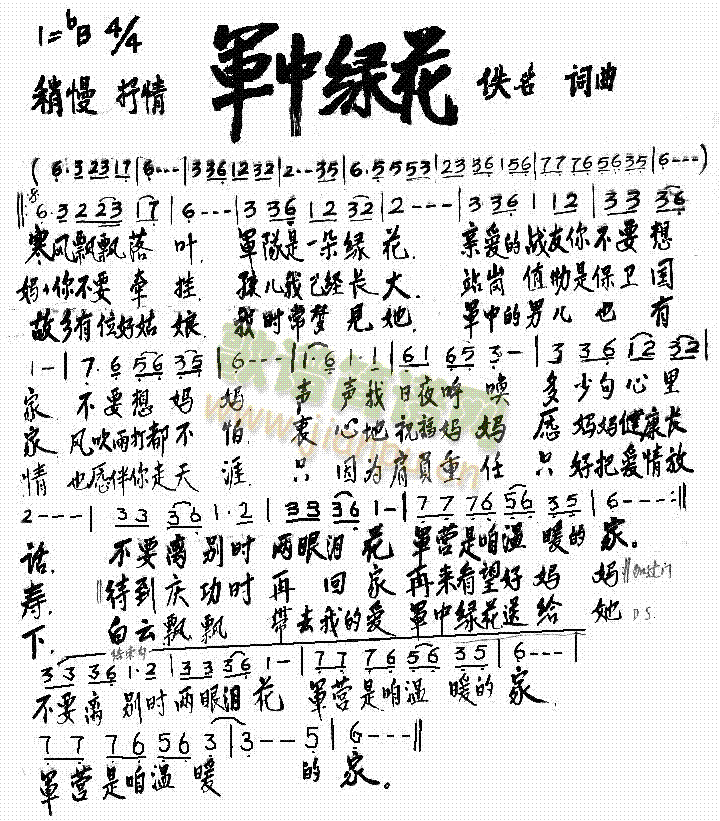 1=♭B 4/4
軍中绿花
稍慢 抒情
佚名 词曲
(6·3 2317 | 6--- | 336 12 32 | 2--35 | 6·5 5553 | 2336 156 | 7776 5635 | 6---)
6·3 2 23 17 | 6--- | 3 36 12 32 | 2--- | 3 36 1 12 | 3 33 36
寒风飘飘落 叶. 軍隊是一朵绿 花. 亲爱的战友你不要想
妈妈你不要 牵 挂. 孩儿我已经长大. 站岗 值勤是保卫国
故乡有位好姑 娘. 我时常梦見她. 軍中的男儿 也 有
1-- | 7·6 56 35 | 6--- | 1·6 1·1 | 61 65 3- | 3 36 12 32
家. 不要想 妈 妈 声 声我日夜呼 唤 多少句心里
家 风吹雨打都不 怕 衷 心地祝福妈 妈 愿 妈妈健康长
情 也愿伴你走天 涯 只 因为肩負重 任 只 好把爱情放
2--- | 33 36 1·2 | 33 36 1- | 77 76 56 35 | 6---
话. 不要离别时 两眼泪 花 軍营是咱温 暖的家.
寿. 待到庆功时再 回 家 再来看望好 妈 妈
下. 白云飘飘 带去我的爱 軍中绿花送给 她 D.S.
结束句
33 36 1·2 | 33 36 1- | 77 76 56 35 | 6---
不要离 别时两眼泪花 軍营是咱温 暖的家.
77 76 56 3 | 3--5 | 6---
軍营是咱温 暖 的 家.